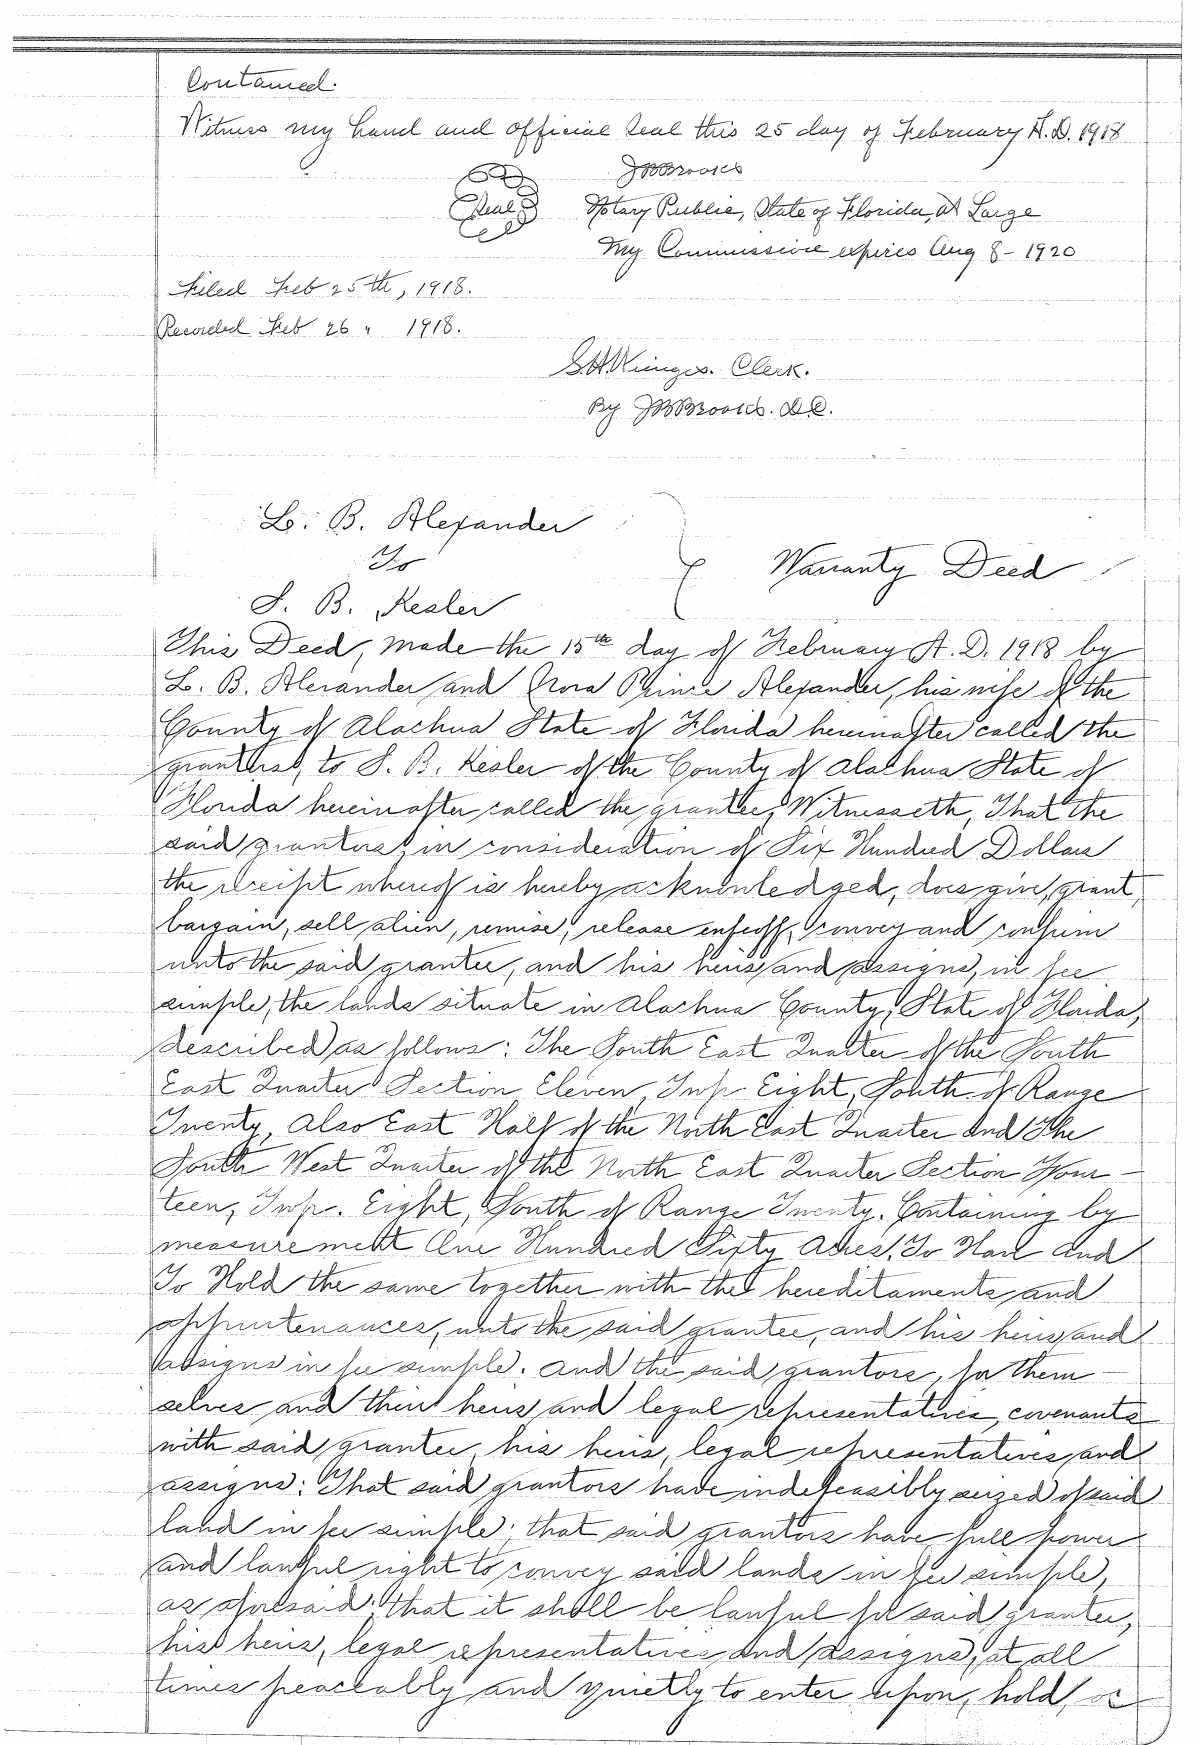 Contained.
Witness my hand and official Seal this 25 day of February A.D. 1918
Seal
Notary Public, State of Florida, at Large
My Commission expires Aug 8 - 1920
Filed Feb 25th, 1918.
Recorded Feb 26 " 1918.
S.H.Wienges. Clerk.
By D.C.
L. B. Alexander
To
Warranty Deed
S. B. Kesler
This Deed, made the 15th day of February A.D. 1918 by
L. B. Alexander and Prince Alexander, his wife of the
County of Alachua State of Florida hereinafter called the
grantors, to S. B. Kesler of the County of Alachua State of
Florida hereinafter called the grantee, Witnesseth, That the
said grantors, in consideration of Six Hundred Dollars
the receipt whereof is hereby acknowledged, does give, grant,
bargain, sell alien, remise, release enfeoff, convey and confirm
unto the said grantee, and his heirs and assigns, in fee
simple, the lands situate in Alachua County, State of Florida,
described as follows: The South East Quarter of the South
East Quarter Section Eleven, Twp Eight, South of Range
Twenty, Also East Half of the North East Quarter and The
South West Quarter of the North East Quarter Section Four-
teen, Twp. Eight, South of Range Twenty. Containing by
measurement One Hundred Sixty Acres, To Have and
To Hold the same together with the hereditaments and
appurtenances, unto the said grantee, and his heirs and
assigns in fee simple. And the said grantors, for them-
selves and their heirs and legal representatives, covenants
with said grantee, his heirs, legal representatives and
assigns: That said grantors have indefeasibly seized of said
land in fee simple; that said grantors have full power
and lawful right to convey said lands in fee simple,
as aforesaid; that it shall be lawful for said grantee,
his heirs, legal representatives and assigns, at all
times peaceably and quietly to enter upon, hold, oc